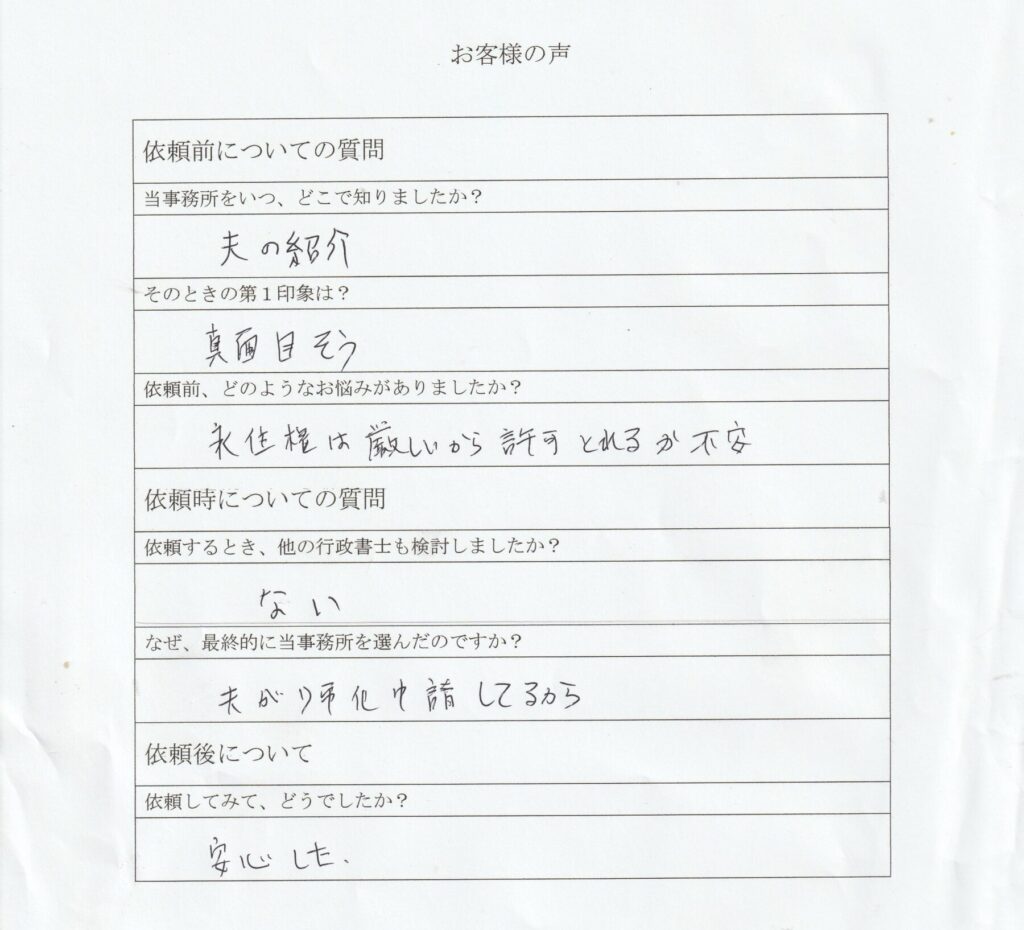 お客様の声
依頼前についての質問
当事務所をいつ、どこで知りましたか？
夫の紹介
そのときの第１印象は？
真面目そう
依頼前、どのようなお悩みがありましたか？
永住権は厳しいから許可とれるか不安
依頼時についての質問
依頼するとき、他の行政書士も検討しましたか？
ない
なぜ、最終的に当事務所を選んだのですか？
夫が帰化申請してるから
依頼後について
依頼してみて、どうでしたか？
安心した.